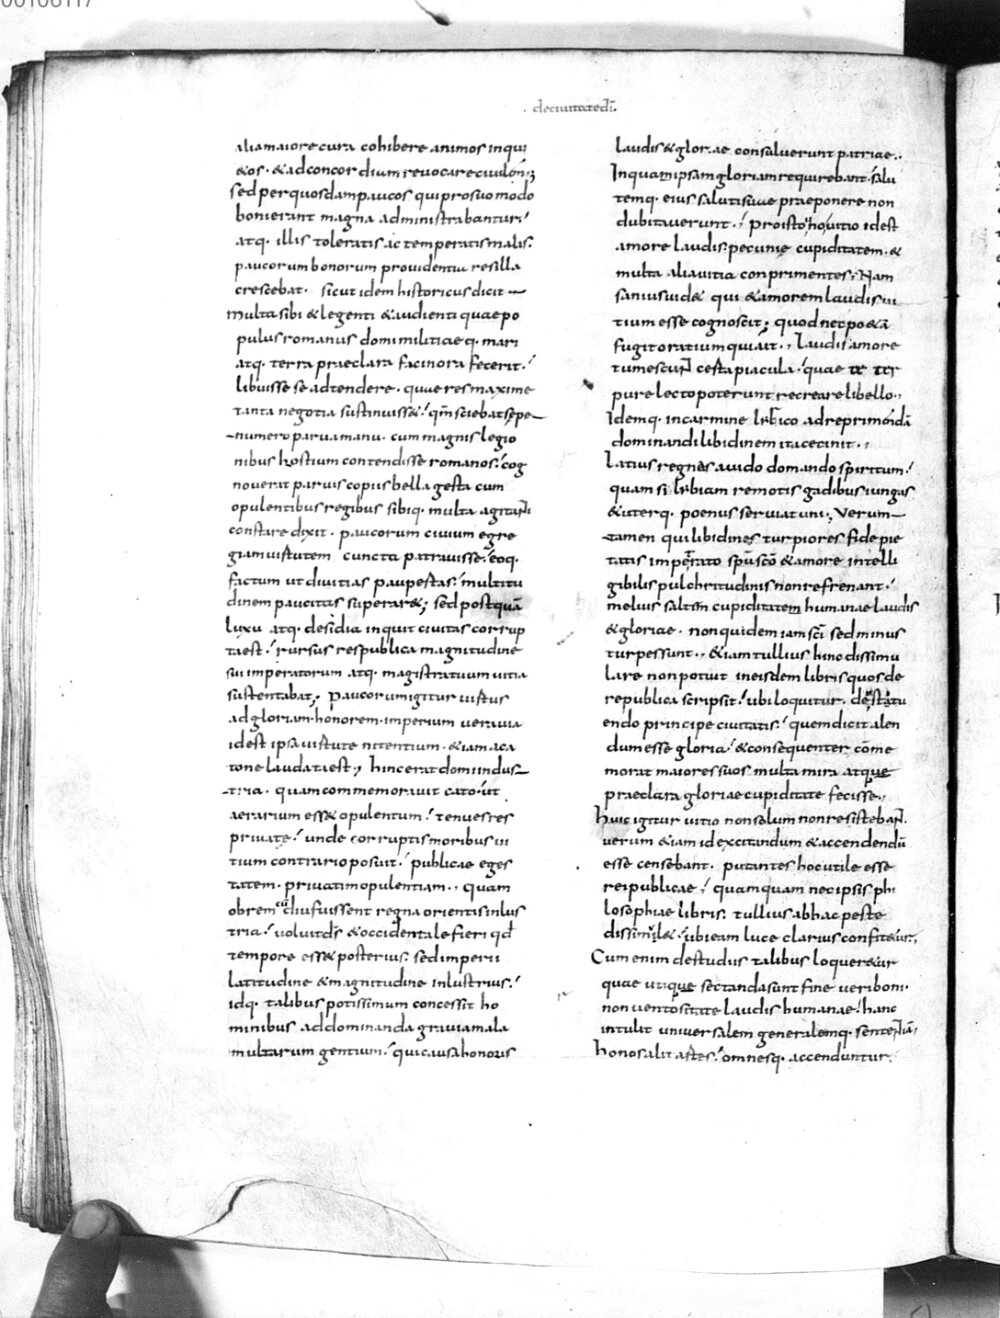 00106117
deciuitatedī.
aliamaiorecura cohibere animos inqui
&os· &adconcordium reuocareciuilem;
sedperquosdampaucos quiprosuomodo
bonierant magna administrabantur·
atq· illis toleratis ac temperatismalis·
paucorumbonorum prouidentia resilla
crescebat· sicutidem historicusdicit
multasibi &legenti &audienti quaepo
pulusromanus domimilitiaeq· mari
atq· terra praeclara facinora fecerit·
libuisse seadtendere· quaeresmaxime
tanta negotia sustinuiss&· qm̄sciebatsępe
numero paruamanu· cum magnislegio
nibus hostium contendisse romanos· cog
nouerat paruiscopiusbella gesta cum
opulentibus regibus sibiq· multa agitanti
constare dixit· paucorum ciuium egre
giamuirtutem cuncta patrauisse· eoq·
factum ut diuitias paupertas· multitu
dinem paucitas superar&; sed postquā
luxu atq· desidia inquit ciuitas corrup
taest· rursus respublica magnitudine
sui imperatorum atq· magistratuum uitia
sustentabat; paucorumigitur uirtus
adgloriam·honorem·imperium uerauia
idest ipsauirtute nitentium· &iamaca
tonelaudataest; hincerat domiindus
tria· quamcommemorauit cato·ut
aerarium ess& opulentum· tenuesres
priuate· unde corruptismoribus in
tium contrario posuit· publicae eges
tatem· priuatimopulentiam·, quam
obrem cū diufuissent regna orientisinlus
tria· uoluitd̄s &occidentale fieri qd̄
tempore ess& posterius· sedimperii
latitudine &magnitudine inlustrius·
idq· talibus potissimum concessit ho
minibus addominanda grauiamala
multarum gentium· quicausahonoris
laudis&gloriae consuluerunt patriae·,
Inquamipsamgloriamrequirebant·salu
temq· eius salutisuae praeponere non
dubitauerunt·, proisto uno uitio idest
amore laudis·pecunię cupiditatem·&
multa alia uitia conprimentes; Nam
saniusuid& qui &amoremlaudis ui
tium esse cognoscit; quod nec po&a
fugit oratium quiait·, laudisamore
tumescunt certa piacula· quae te ter
pure lecto poterunt recreare libello·,
Idemq· incarmine liricо adreprimendā
dominandi libidinem itacecinit·,
latius regnes auido domando spiritum·
quam si libiam remotis gadibus iungas
&uterq· poenus seruiat uni·, Verum
tamen qui libidines turpiores fide pie
tatis impetrato sp̄u scō &amore intelli
gibilis pulchritudinis nonrefrenant·
melius saltem cupiditatem humanae laudis
&gloriae· nonquidem iam sc̄i sed minus
turpessunt·, &iamtullius hinc dissimu
lare non potuit ineisdem libris quos de
republica scripsit· ubi loquitur· deinstitu
endo principe ciuitatis· quem dicit alen
dum esse gloria· &consequenter cōme
morat maiores suos multa mira atque
praeclara gloriae cupiditate fecisse·,
huic igitur uitio nonsolum nonresistebant·
uerum &iam id excitandum &accendendū
esse censebant· putantes hoc utile esse
reipublicae· quamquam nec ipsis phi
losophiae libris· tullius ab hac peste
dissimul&· ubi eam luce clarius confit&ur·,
Cum enim destudiis talibus loquer&ur
quae utique sectanda sunt fine ueriboni·
non uentositate laudis humanae· hanc
intulit uniuersalem generalemq· sententiā;
honos alit artes· omnesq· accenduntur·